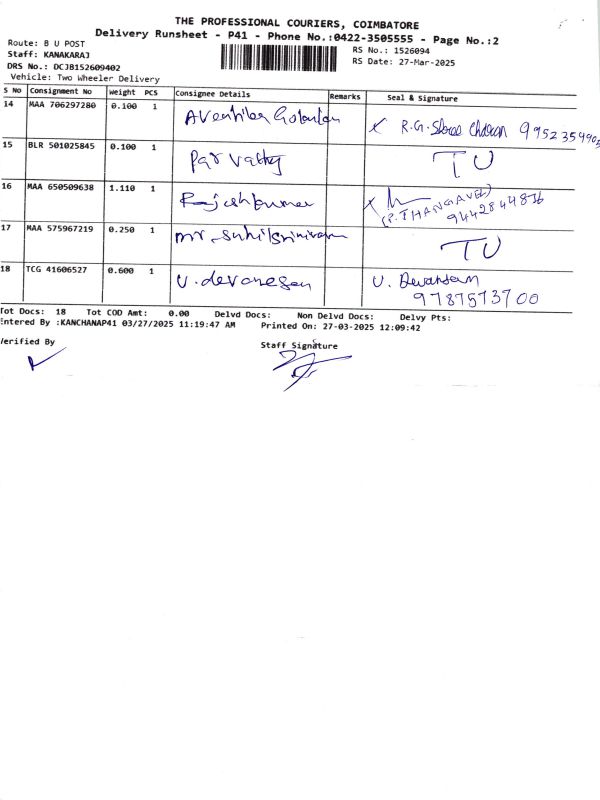 THE PROFESSIONAL COURIERS, COIMBATORE
Delivery Runsheet - P41 - Phone No.:0422-3505555 - Page No.:2
Route: B U POST
Staff: KANAKARAJ
DRS No.: DCJB152609402
Vehicle: Two Wheeler Delivery
RS No.: 1526094
RS Date: 27-Mar-2025
S No Consignment No Weight PCS Consignee Details Remarks Seal & Signature
14 MAA 706297280 0.100 1 R.G. 9952359905
15 BLR 501025845 0.100 1 Parvathy TU
16 MAA 650509638 1.110 1 Rajeshkumar (P.THANGAVEL)
9442844836
17 MAA 575967219 0.250 1 mr. TU
18 TCG 41606527 0.600 1 U.devanesan U.
9787573700
Tot Docs: 18 Tot COD Amt: 0.00 Delvd Docs: Non Delvd Docs: Delvy Pts:
Entered By :KANCHANAP41 03/27/2025 11:19:47 AM Printed On: 27-03-2025 12:09:42
Verified By Staff Signature